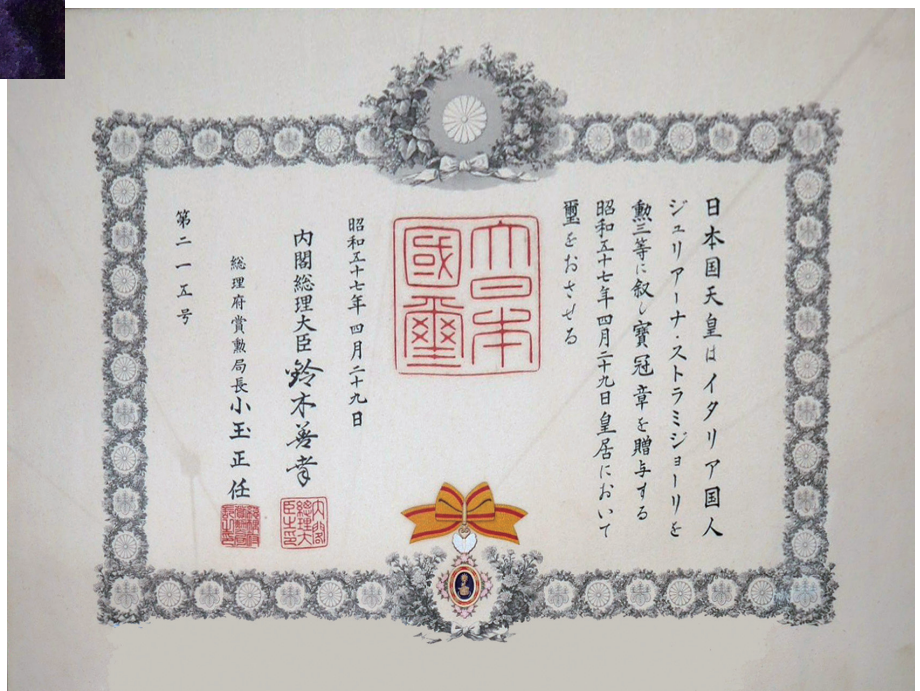 日本国天皇はイタリア国人
ジュリアーナ・ストラミジョーリを
勲三等に叙し寳冠章を贈与する
昭和五十七年四月二十九日皇居において
璽をおさせる
大日本
國璽
昭和五十七年四月二十九日
内閣総理大臣 鈴木善幸
内閣
總理大
臣之印
総理府賞勲局長 小玉正任
第二一五号